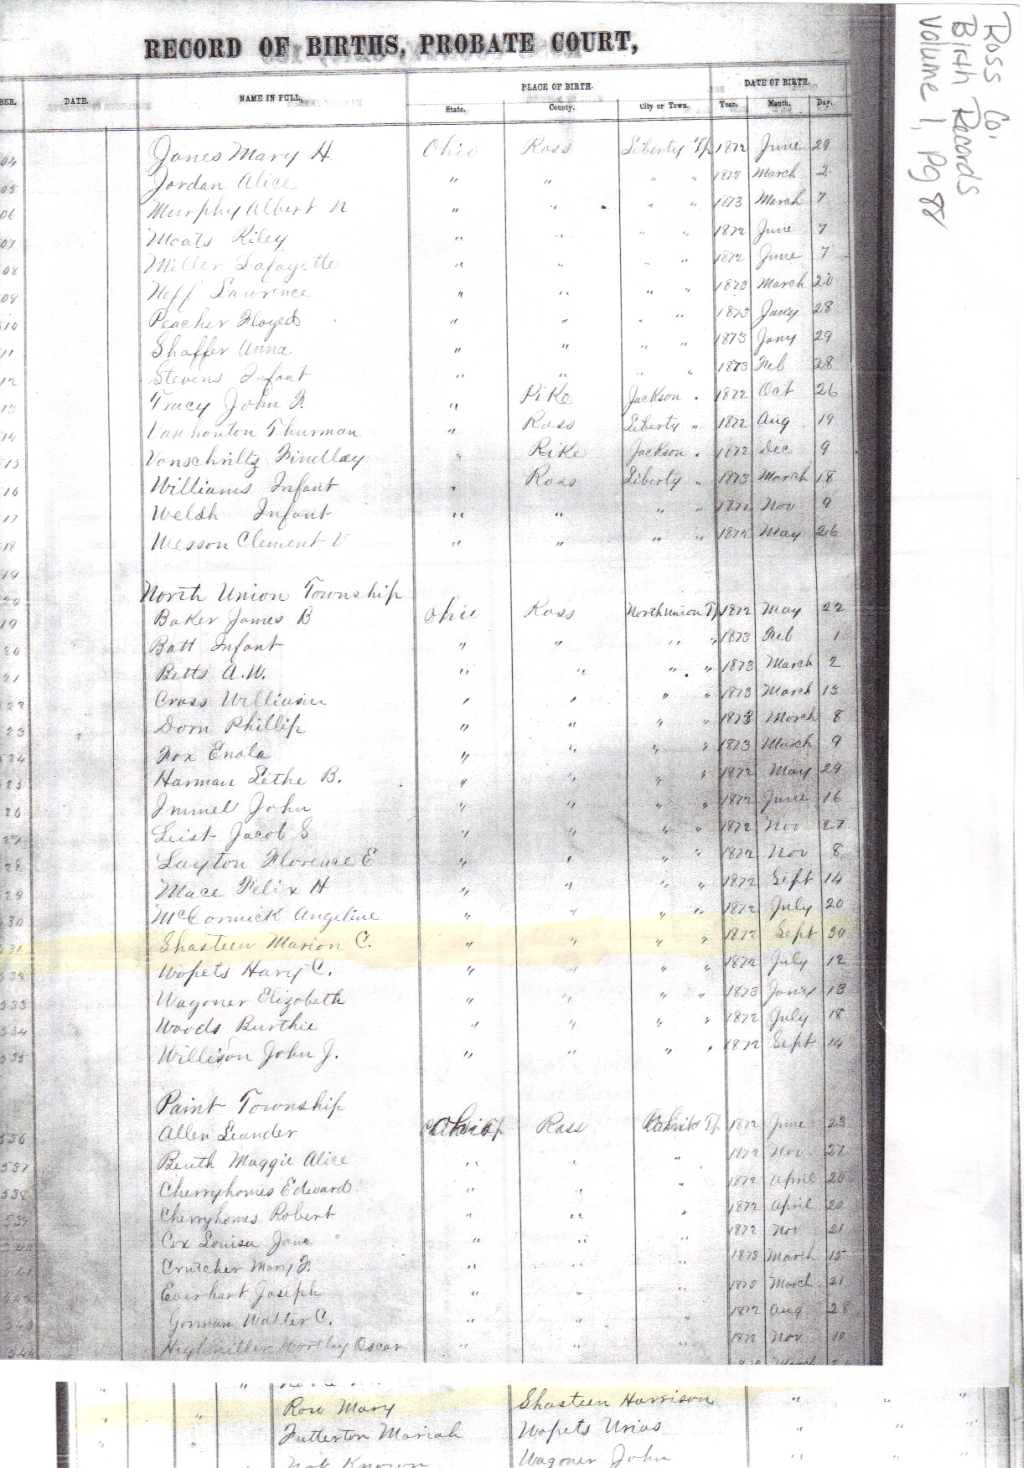 Ross Co.
Birth Records
Volume 1, Pg 88
RECORD OF BIRTHS, PROBATE COURT,
BER. DATE. NAME IN FULL. PLACE OF BIRTH. DATE OF BIRTH.
State. County. City or Town. Year. Month. Day.
04 Jones Mary H Ohio Ross Liberty Tp 1872 June 29
05 Jordan Alice " " " " 1873 March 2
06 Murphy Albert N " " " " 1873 March 7
07 Moats Riley " " " " 1872 June 7
08 Miller Lafayette " " " " 1872 June 7
09 Neff Lawrence " " " " 1873 March 20
10 Peacher Floyed " " " " 1873 Jany 28
11 Shaffer Anna " " " " 1873 Jany 29
12 Stevens Infant " " " " 1873 Feb 28
13 Tracy John F. " Pike Jackson " 1872 Oct 26
14 Vanhouton Thurman " Ross Liberty " 1872 Aug 19
15 Vanschriltz Findlay " Pike Jackson " 1872 Dec 9
16 Williams Infant " Ross Liberty " 1873 March 18
17 Welsh Infant " " " " 1872 Nov 9
18 Wesson Clement V " " " " 1872 May 26
19
20 North Union Township
19 Baker James B Ohio Ross North Union Tp 1872 May 22
20 Batt Infant " " " " 1873 Feb 1
21 Betts A.W. " " " " 1873 March 2
22 Cross William " " " " 1873 March 13
23 Dorn Phillip " " " " 1873 March 8
24 Fox Enola " " " " 1873 March 9
25 Harman Lethe B. " " " " 1872 May 29
26 Immel John " " " " 1872 June 16
27 Leist Jacob S " " " " 1872 Nov 27
28 Layton Florence E " " " " 1872 Nov 8
29 Mace Felix H " " " " 1872 Sept 14
30 McCormick Angeline " " " " 1872 July 20
31 Shasteen Marion C. " " " " 1872 Sept 30
532 Wopets Hary C. " " " " 1872 July 12
533 Wagoner Elizabeth " " " " 1873 Jany 13
534 Woods Burthie " " " " 1872 July 18
535 Willison John J. " " " " 1872 Sept 14
Paint Township
536 Allen Leander Ross Tp 1872 June 23
537 Benth Maggie Alice " " " 1872 Nov 27
538 Cherryhomes Edward " " " 1872 April 20
539 Cherryhomes Robert " " " 1872 April 20
540 Cox Louisa Jane " " " 1872 Nov 21
541 Crutcher Mary F. " " " 1873 March 15
Everhart Joseph " " " 1873 March 21
543 Gorman Walter C. " " " 1872 Aug 28
544 Oscar " " " 1872 Nov 10
" " Rose Mary Shasteen Harrison " " "
" " Futterton Mariah Wopets Urias " " "
Not Known Wagoner John " "